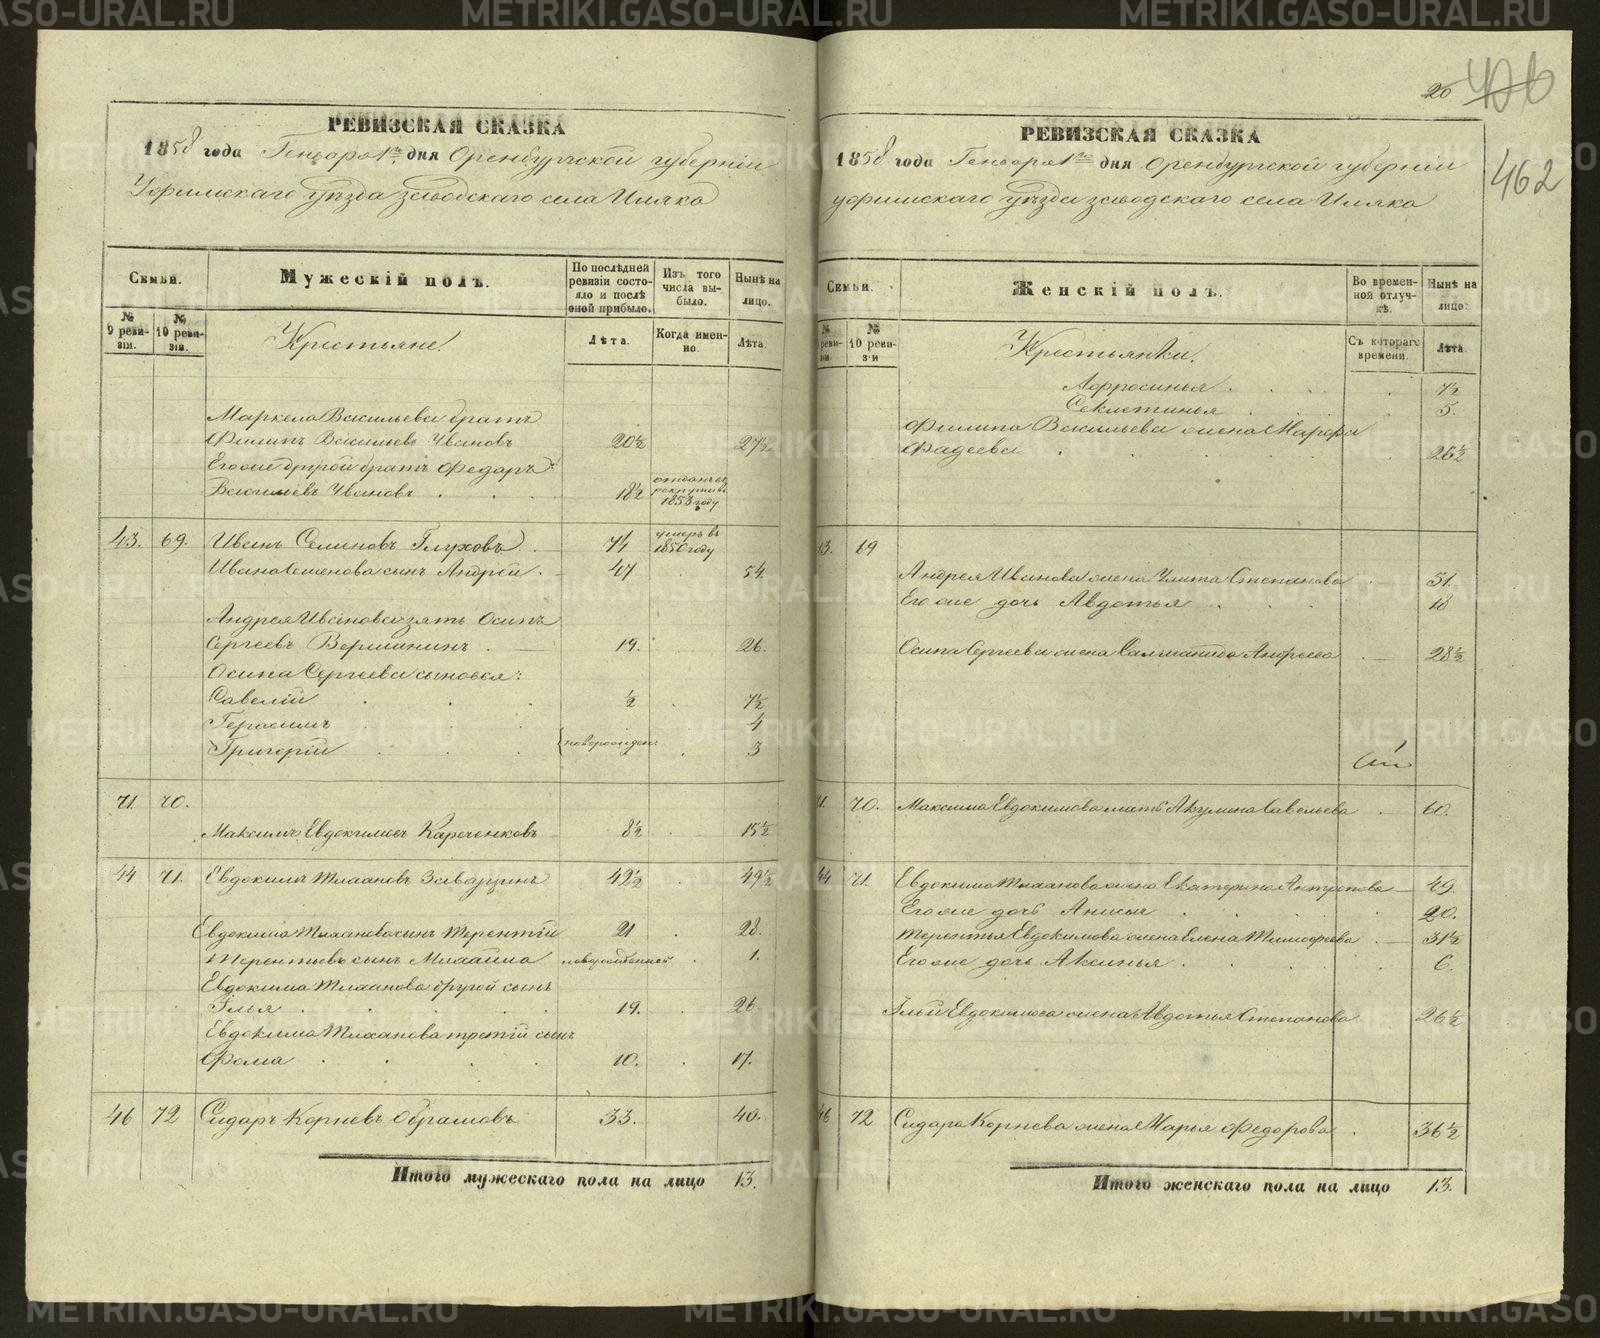 РЕВИЗСКАЯ СКАЗКА
1858 года Генваря 1го дня Оренбургской губернии
Уфимскаго уѣзда заводскаго села Иляка
Семьи.
Мужескій полъ.
По послѣдней ревизіи состояло и послѣ оной прибыло.
Изъ того числа выбыло.
Нынѣ на лицо.
№ 9 ревизіи.
№ 10 ревизіи.
Крестьяне.
Лѣта.
Когда именно.
Лѣта.
Маркела Васильева братъ
Филипъ Васильевъ Ивановъ 20½ 27½
Его же другой братъ Федаръ
Васильевъ Ивановъ 18½ отданъ въ рекруты въ 1853 году
43. 69. Иванъ Семеновъ Глуховъ 74 умеръ въ 1850 году
Ивана Семенова сынъ Андрей 47 54.
Андрея Иванова зять Осипъ
Сергеевъ Вершининъ 19. 26.
Осипа Сергеева сыновья:
Савелій ½ 7½
Герасимъ 4
Григорій новорожден: 3
71. 70.
Максимъ Евдокимовъ 8½ 15½
44 71. Евдокимъ Заварзинъ 42½ 49½
Евдокима сынъ Терентій 21 28.
Терентьевъ сынъ Михаила новорожденной 1.
Евдокима другой сынъ
Илья 19. 26.
Евдокима третій сынъ
Фома 10. 17.
46 72 Сидаръ Корневъ Обрамовъ 33. 40.
Итого мужескаго пола на лицо 13.
20 426
462
РЕВИЗСКАЯ СКАЗКА
1858 года Генваря 1го дня Оренбургской губерніи
уфимскаго уѣзда заводскаго села Иляка
Семьи.
Женскій полъ.
Во временной отлучкѣ.
Нынѣ на лицо.
№ 10 ревизи
Крестьянки.
Съ котораго времени.
Лѣта
Афросинья 7½
Секлетинья 5.
Филипа Васильева жена Марфа
Фадеева 26½
43. 69
Андрея Иванова жена Улита Степанова 51.
Его же дочь Авдотья 18
Осипа Сергеева жена Андреева 28½
71. 70. Максима Евдокимова мать Акулина Савельева 60.
44 71. Евдокима жена Екатерина Антропова 49.
Его же дочь Анисья 20.
Терентья Евдокимова жена Елена Тимофеева 31½
Его же дочь Аксинья 6.
Ильи Евдокимова жена Авдотья Степанова 26½
46 72 Сидара Корнева жена Марья Федорова 36½
Итого женскаго пола на лицо 13.
METRIKI.GASO-URAL.RU